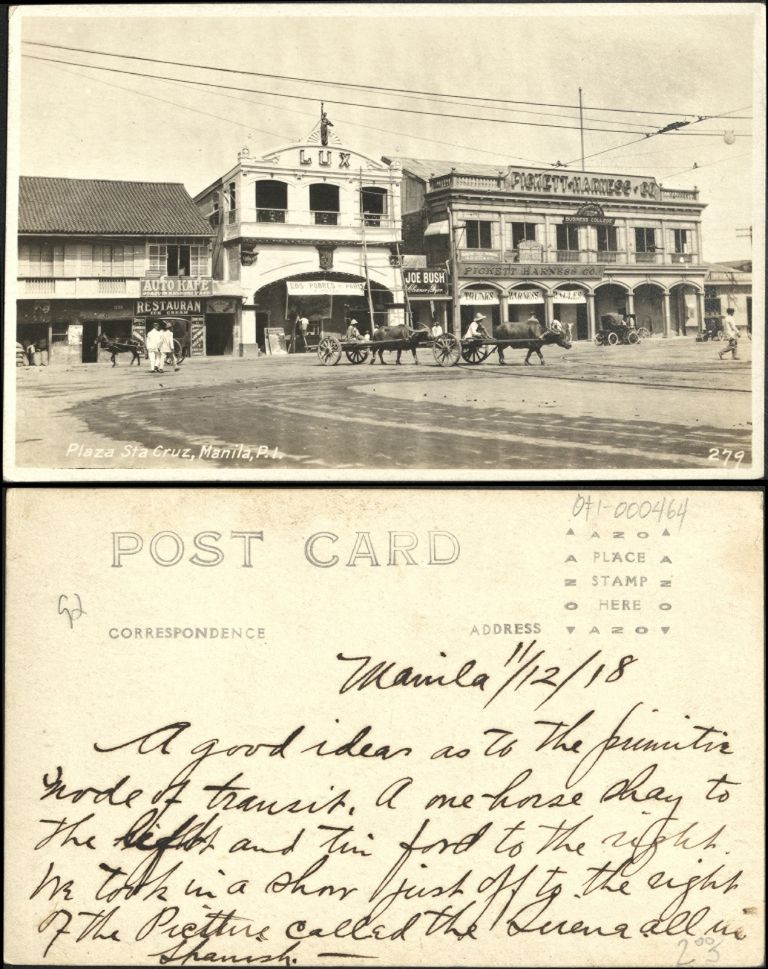 LUX
PICKETT HARNESS CO
BUSINESS COLLEGE
AUTO KAFE
RESTAURAN
ICE CREAM
LOS POBRES - PARIS
JOE BUSH
PICKETT HARNESS CO.
TRUNKS HARNESS VALISES
Plaza Sta Cruz, Manila, P.I.
279
071-000464
POST CARD
AZO
PLACE
STAMP
HERE
AZO
CORRESPONDENCE
ADDRESS
Manila 11/12/18
A good idea as to the primitive
mode of transit. A one-horse shay to
the left and tin ford to the right.
We took in a show just off to the right
of the Picture called the Sirena all in
Spanish. —
2005